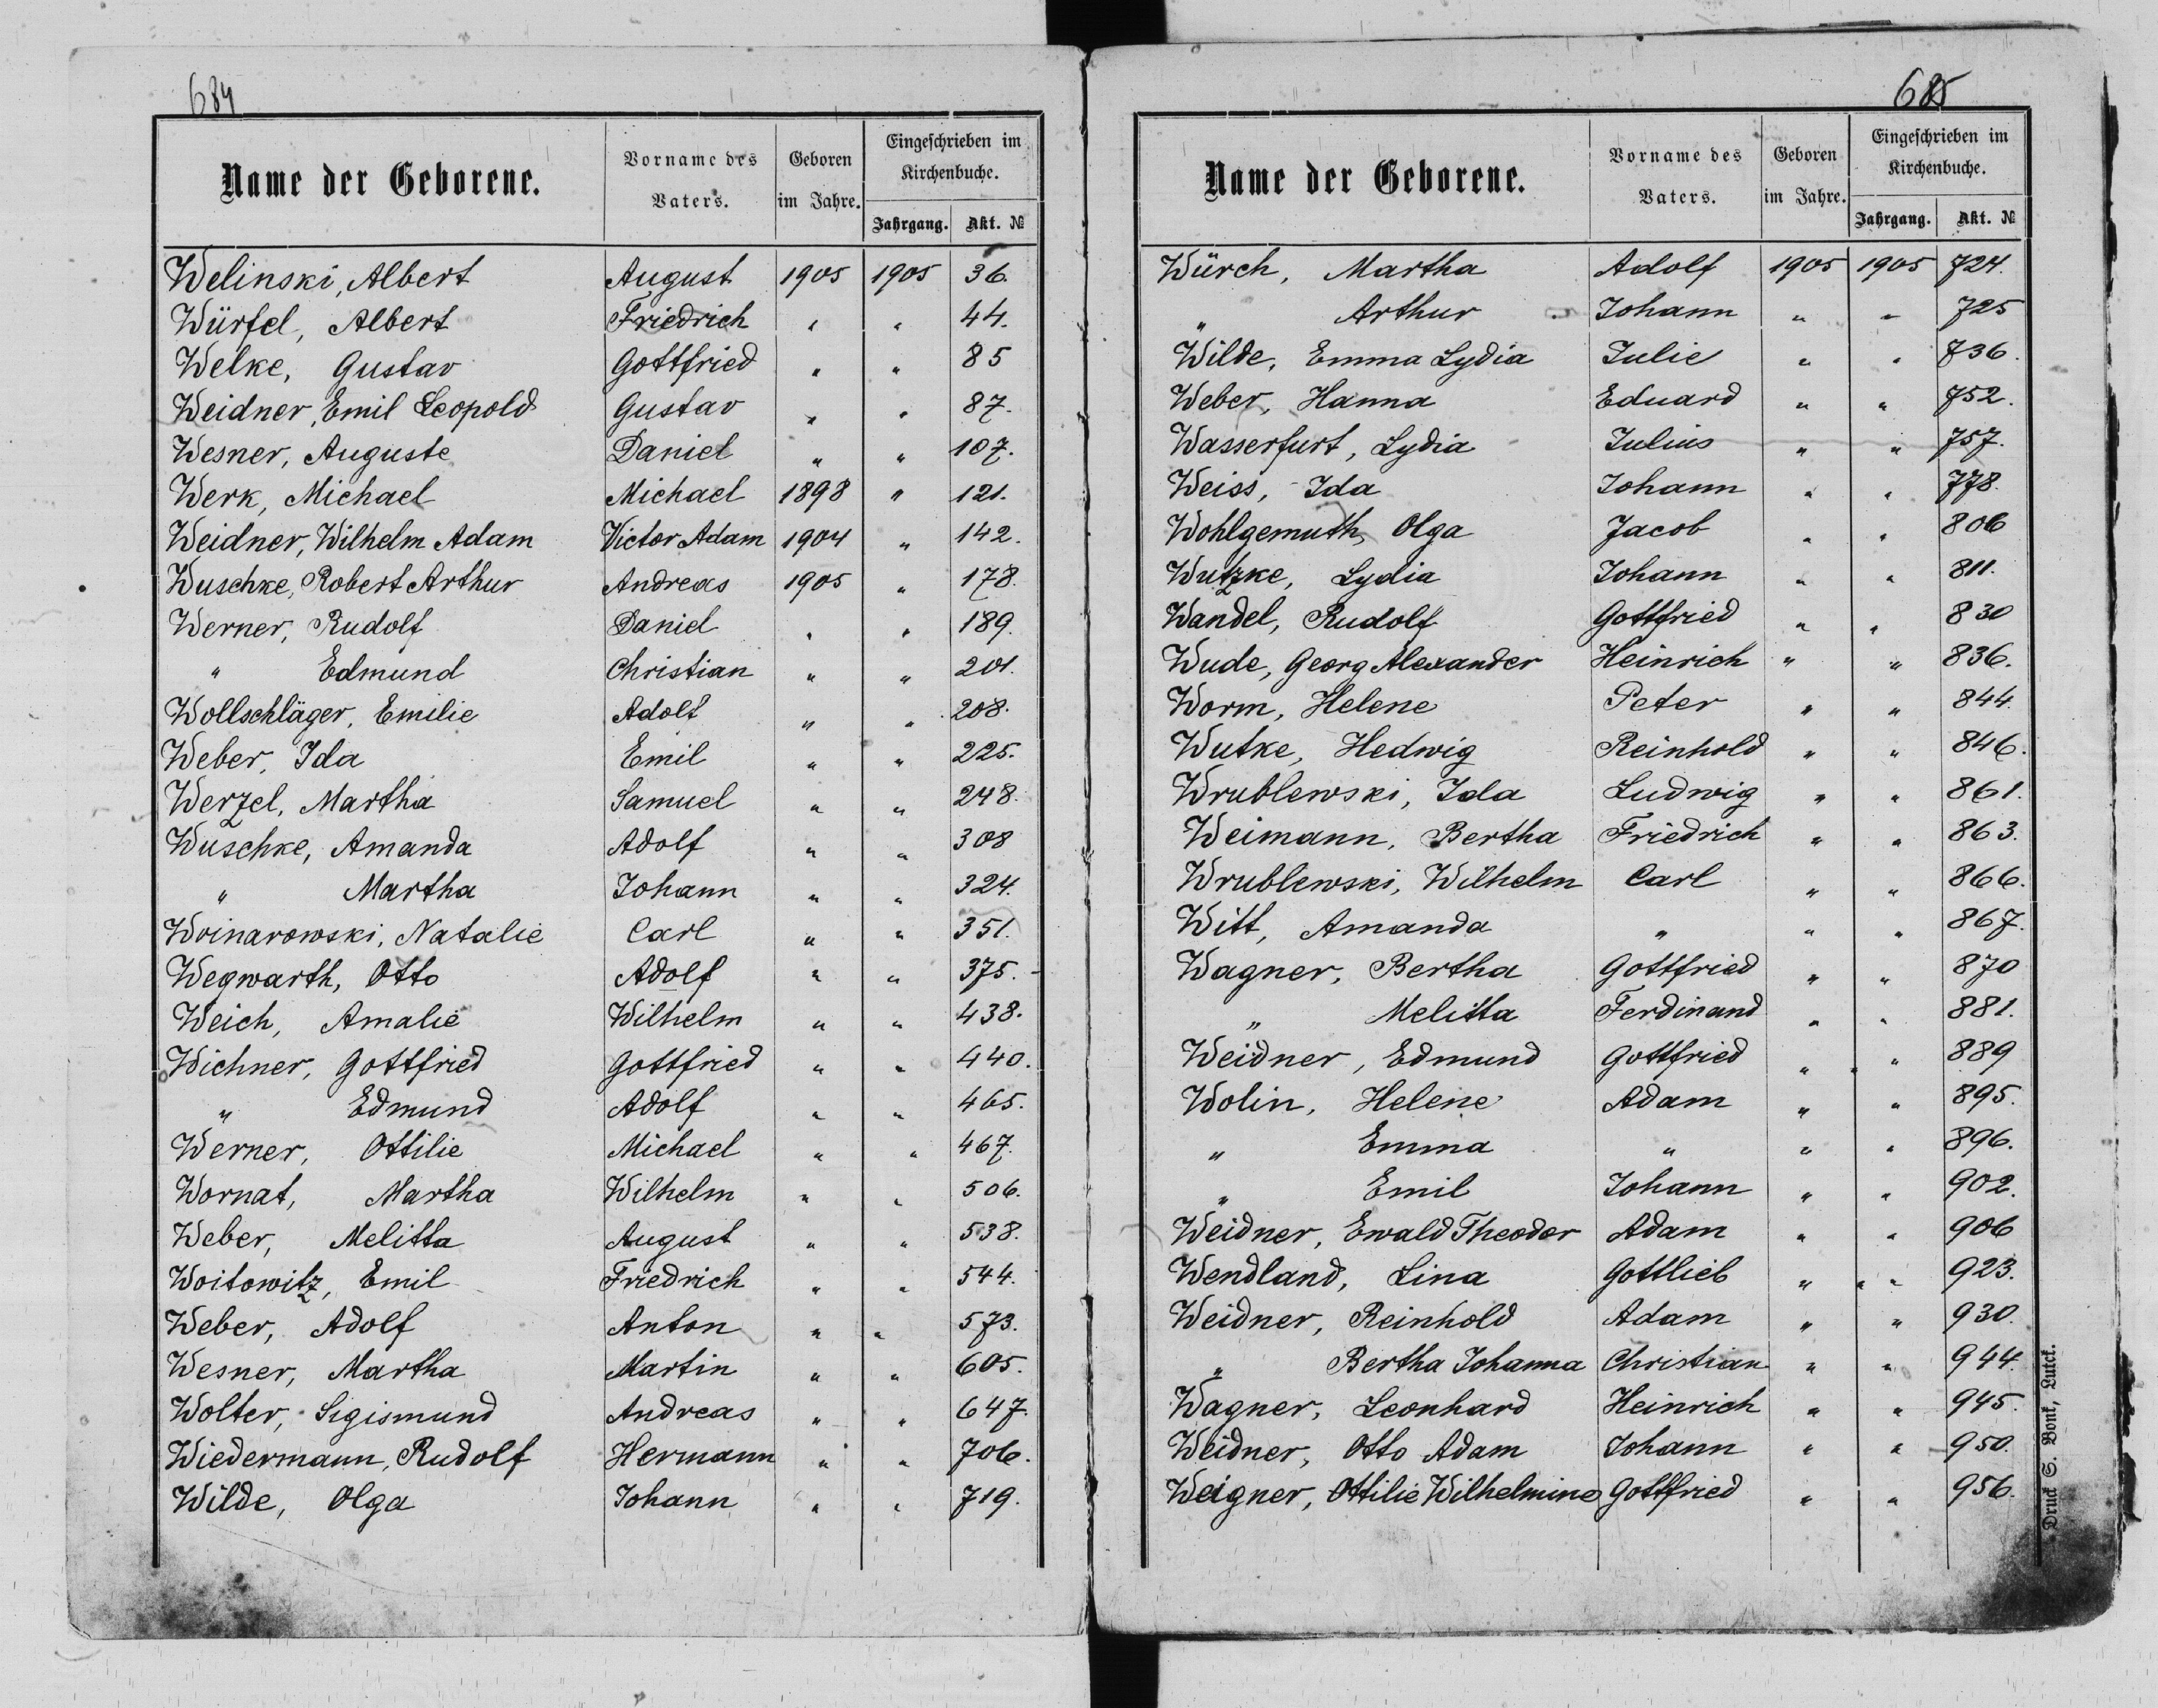 684
Name der Geborene. Vorname des Vaters. Geboren im Jahre. Eingeschrieben im Kirchenbuche. Jahrgang. Akt. №
Welinski, Albert August 1905 1905 36.
Würfel, Albert Friedrich " " 44.
Welke, Gustav Gottfried " " 85
Weidner, Emil Leopold Gustav " " 87.
Wesner, Auguste Daniel " " 107.
Werk, Michael Michael 1898 " 121.
Weidner, Wilhelm Adam Victor Adam 1904 " 142.
Wuschke, Robert Arthur Andreas 1905 " 178.
Werner, Rudolf Daniel " " 189.
" Edmund Christian " " 201.
Wollschläger, Emilie Adolf " " 208.
Weber, Ida Emil " " 225.
Werzel, Martha Samuel " " 248.
Wuschke, Amanda Adolf " " 308
" Martha Johann " " 324.
Woinarowski, Natalie Carl " " 351.
Wegwarth, Otto Adolf " " 375.
Weich, Amalie Wilhelm " " 438.
Wichner, Gottfried Gottfried " " 440.
" Edmund Adolf " " 465.
Werner, Ottilie Michael " " 467.
Wornat, Martha Wilhelm " " 506.
Weber, Melitta August " " 538.
Woitowitz, Emil Friedrich " " 544.
Weber, Adolf Anton " " 573.
Wesner, Martha Martin " " 605.
Wolter, Sigismund Andreas " " 647.
Wiedermann, Rudolf Hermann " " 706.
Wilde, Olga Johann " " 719.
685
Name der Geborene. Vorname des Vaters. Geboren im Jahre. Eingeschrieben im Kirchenbuche. Jahrgang. Akt. №
Würch, Martha Adolf 1905 1905 724.
" Arthur Johann " " 725
Wilde, Emma Lydia Julie " " 736.
Weber, Hanna Eduard " " 752.
Wasserfurt, Lydia Julius " " 757.
Weiss, Ida Johann " " 778.
Wohlgemuth, Olga Jacob " " 806
Wutzke, Lydia Johann " " 811.
Wandel, Rudolf Gottfried " " 830
Wude, Georg Alexander Heinrich " " 836.
Worm, Helene Peter " " 844.
Wutke, Hedwig Reinhold " " 846.
Wrublewski, Ida Ludwig " " 861.
Weimann, Bertha Friedrich " " 863.
Wrublewski, Wilhelm Carl " " 866.
Witt, Amanda " " " 867.
Wagner, Bertha Gottfried " " 870
" Melitta Ferdinand " " 881.
Weidner, Edmund Gottfried " " 889
Wolin, Helene Adam " " 895.
" Emma " " " 896.
" Emil Johann " " 902.
Weidner, Ewald Theodor Adam " " 906
Wendland, Lina Gottlieb " " 923.
Weidner, Reinhold Adam " " 930.
" Bertha Johanna Christian " " 944.
Wagner, Leonhard Heinrich " " 945.
Weidner, Otto Adam Johann " " 950.
Weigner, Ottilie Wilhelmine Gottfried " " 956.
Druck S. Bonk, Lutck.